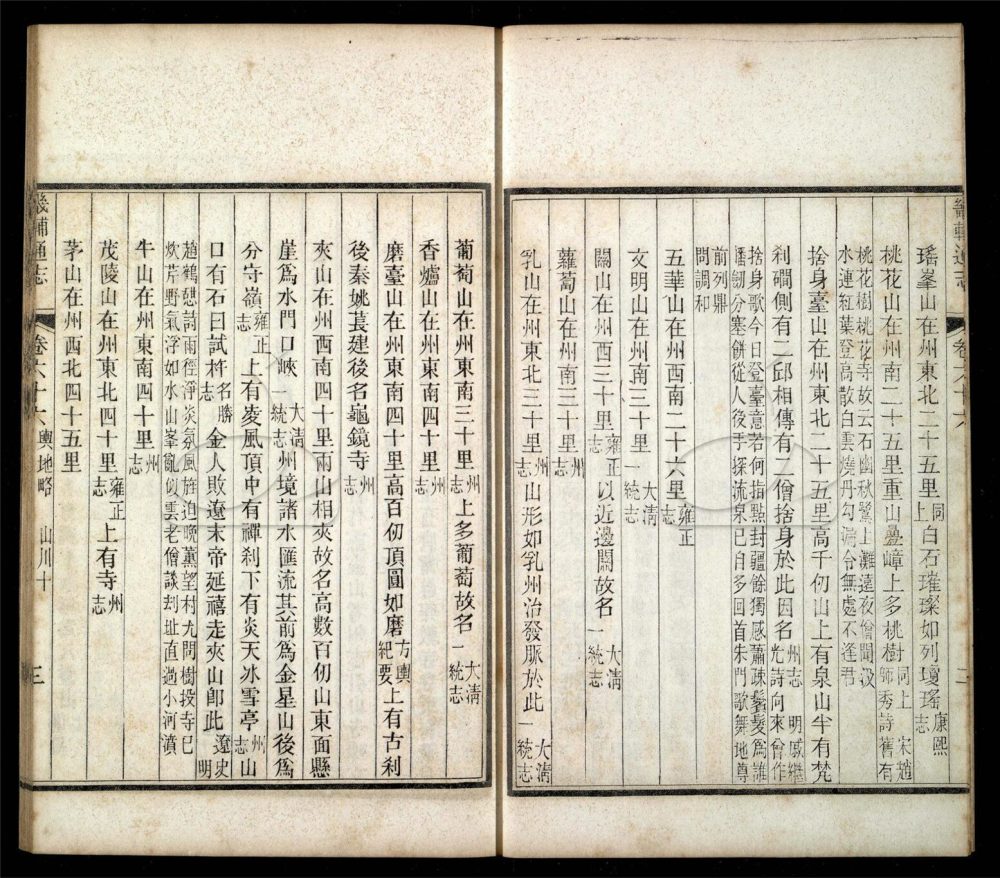 畿輔通志 卷六十六 二
瑤峯山在州東北二十五里同上白石璀璨如列瓊瑤康熙志
桃花山在州南二十五里重山疊嶂上多桃樹同上 宋趙師秀詩舊有
桃花樹桃花寺故云石幽秋鷺上灘遠夜僧聞汲
水連紅葉登高散白雲燒丹勾漏令無處不逢君
捨身臺山在州東北二十五里高千仞山上有泉山半有梵
剎磵側有二邱相傳有二僧捨身於此因名州志 明戚繼光詩向來曾作
捨身歌今日登臺意若何指點封疆餘獨感蕭疎鬢髮為誰
皤劒分塞餅從人後手探流泉已自多回首朱門歌舞地尊
前列鼎問調和
五華山在州西南二十六里雍正志
文明山在州南三十里大清一統志
關山在州西三十里雍正志以近邊關故名大清一統志
蘿蔔山在州南三十里州志
乳山在州東北三十里州志山形如乳州治發脈於此大清一統志
葡萄山在州東南三十里州志上多葡萄故名大清一統志
香爐山在州東南四十里州志
磨臺山在州東南四十里高百仞頂圓如磨方輿紀要上有古剎
後秦姚萇建後名龜鏡寺州志
夾山在州西南四十里兩山相夾故名高數百仞山東面懸
崖為水門口峽大清一統志州境諸水匯流其前為金星山後為
分守嶺雍正志上有凌風頂中有禪剎下有炎天冰雪亭州志山
口有石曰試杵名勝志金人敗遼末帝延禧走夾山卽此遼史 明
趙鶴憇詩雨徑淨炎氛風旌迫晩薰望村尤問樹投寺已
炊芹野氣浮如水山峯亂似雲老僧談刦址直過小河濆
牛山在州東南四十里州志
茂陵山在州東北四十里雍正志上有寺州志
茅山在州西北四十五里
畿輔通志 卷六十六 輿地略 山川十 三